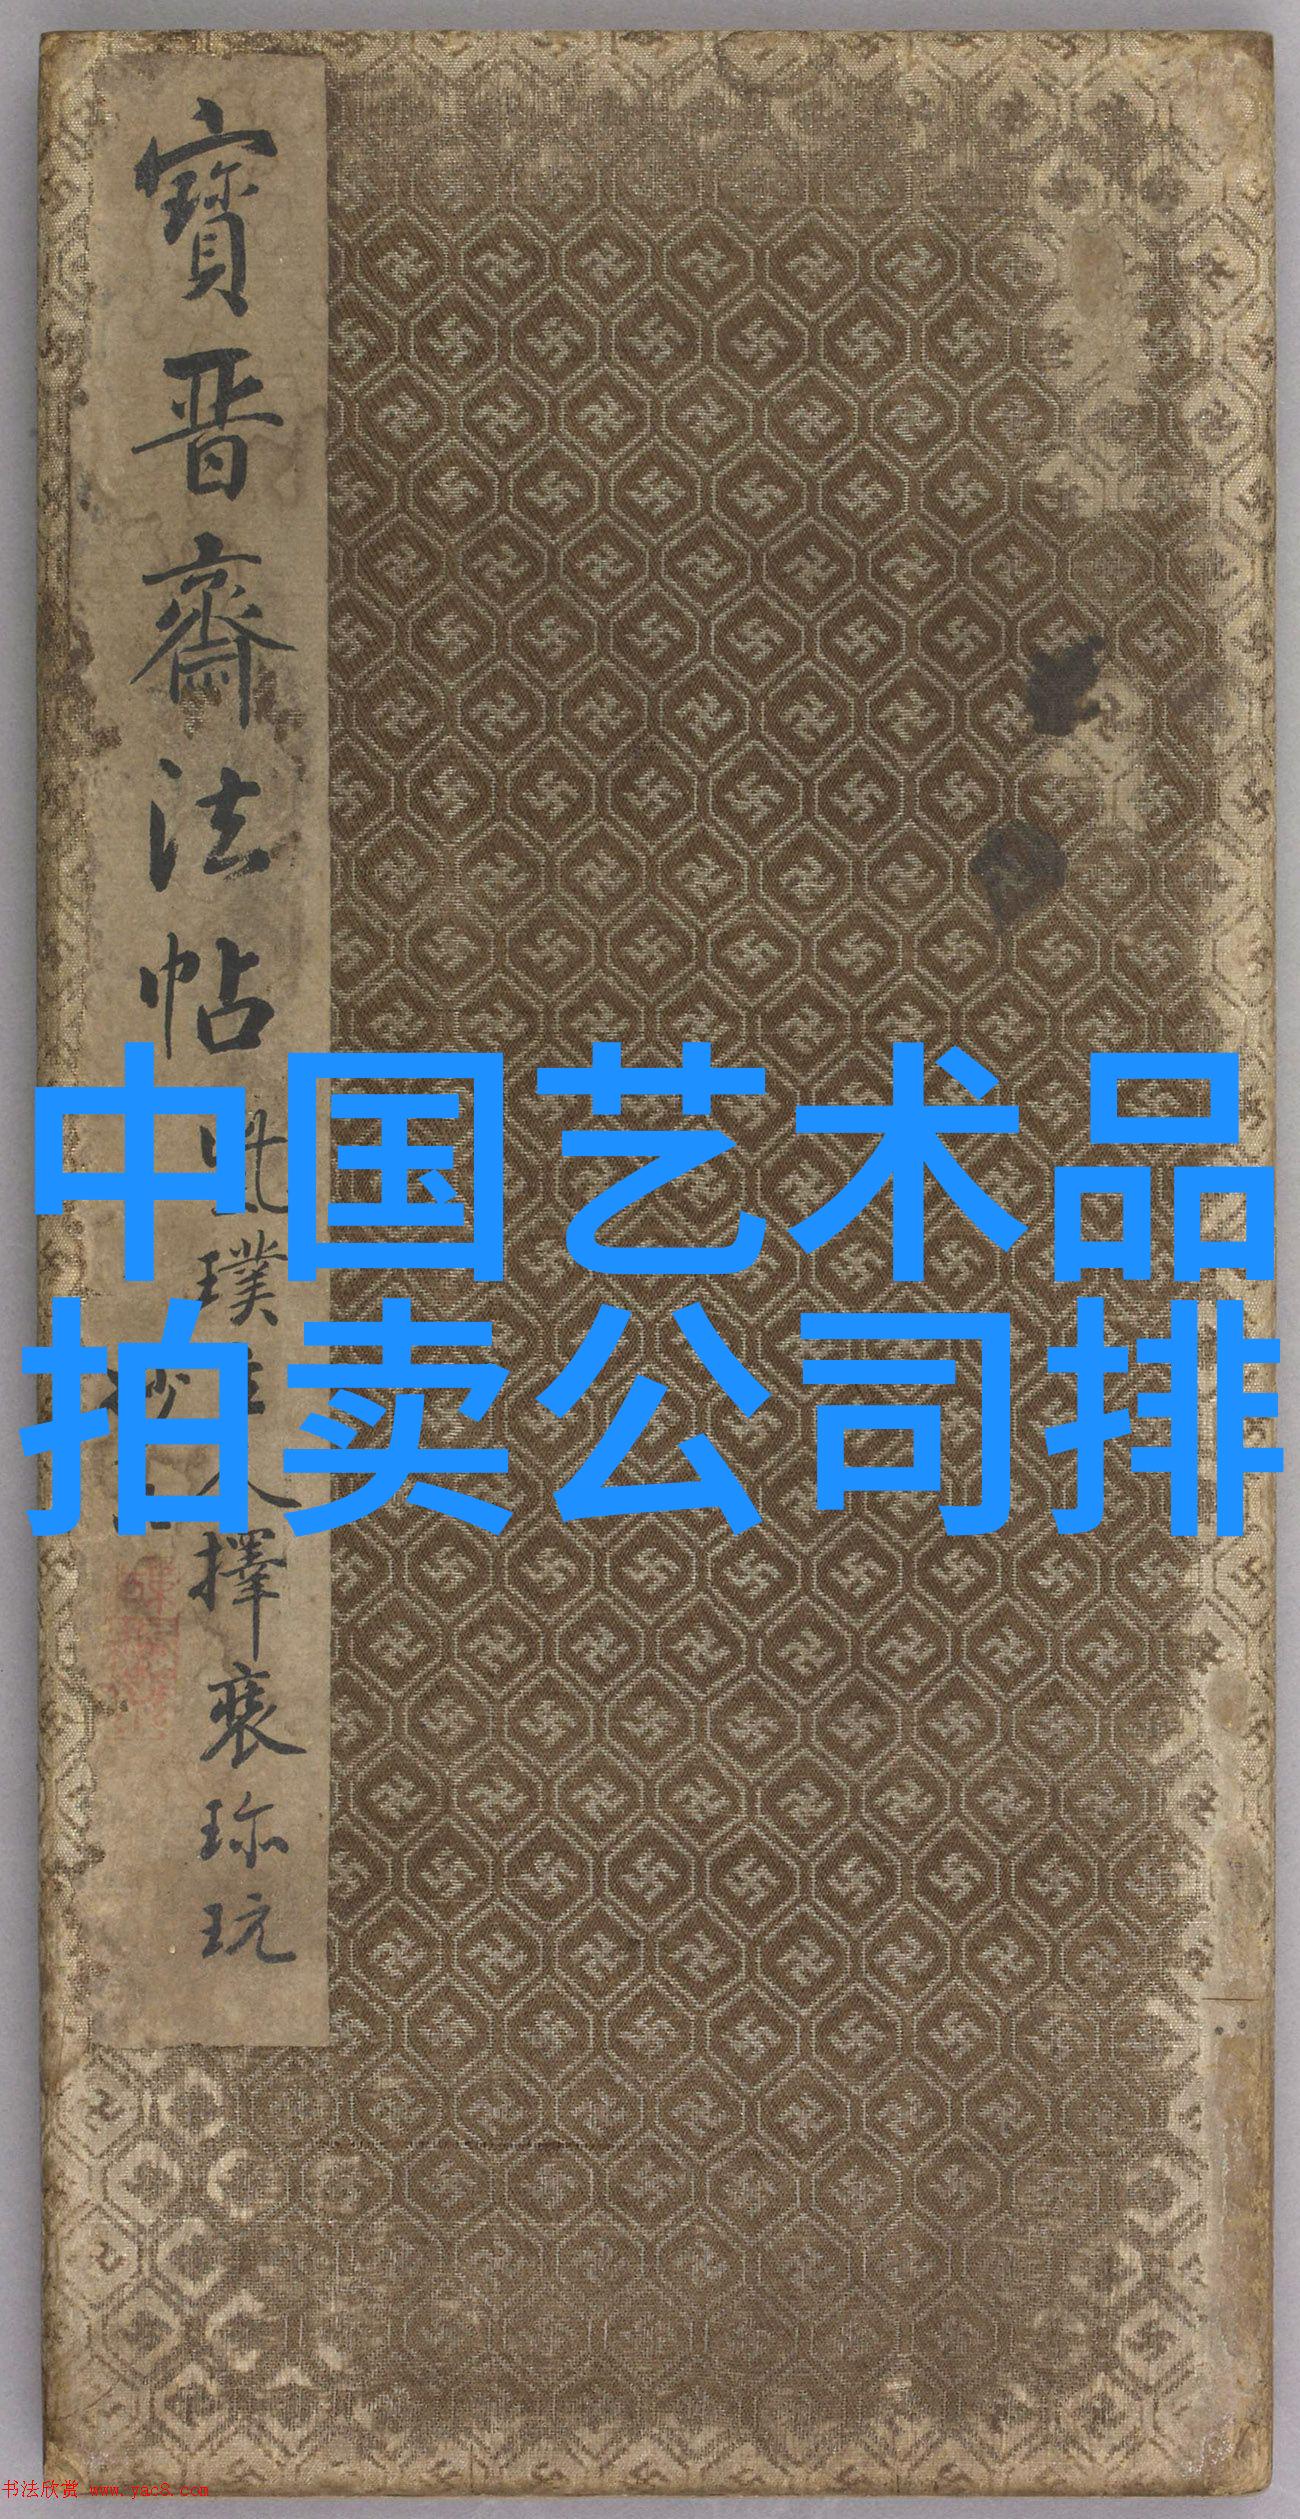 寶晋齋法帖
璞
擇裘珎玩
中国艺术品
拍卖公司排
书法欣赏 www.yac8.com